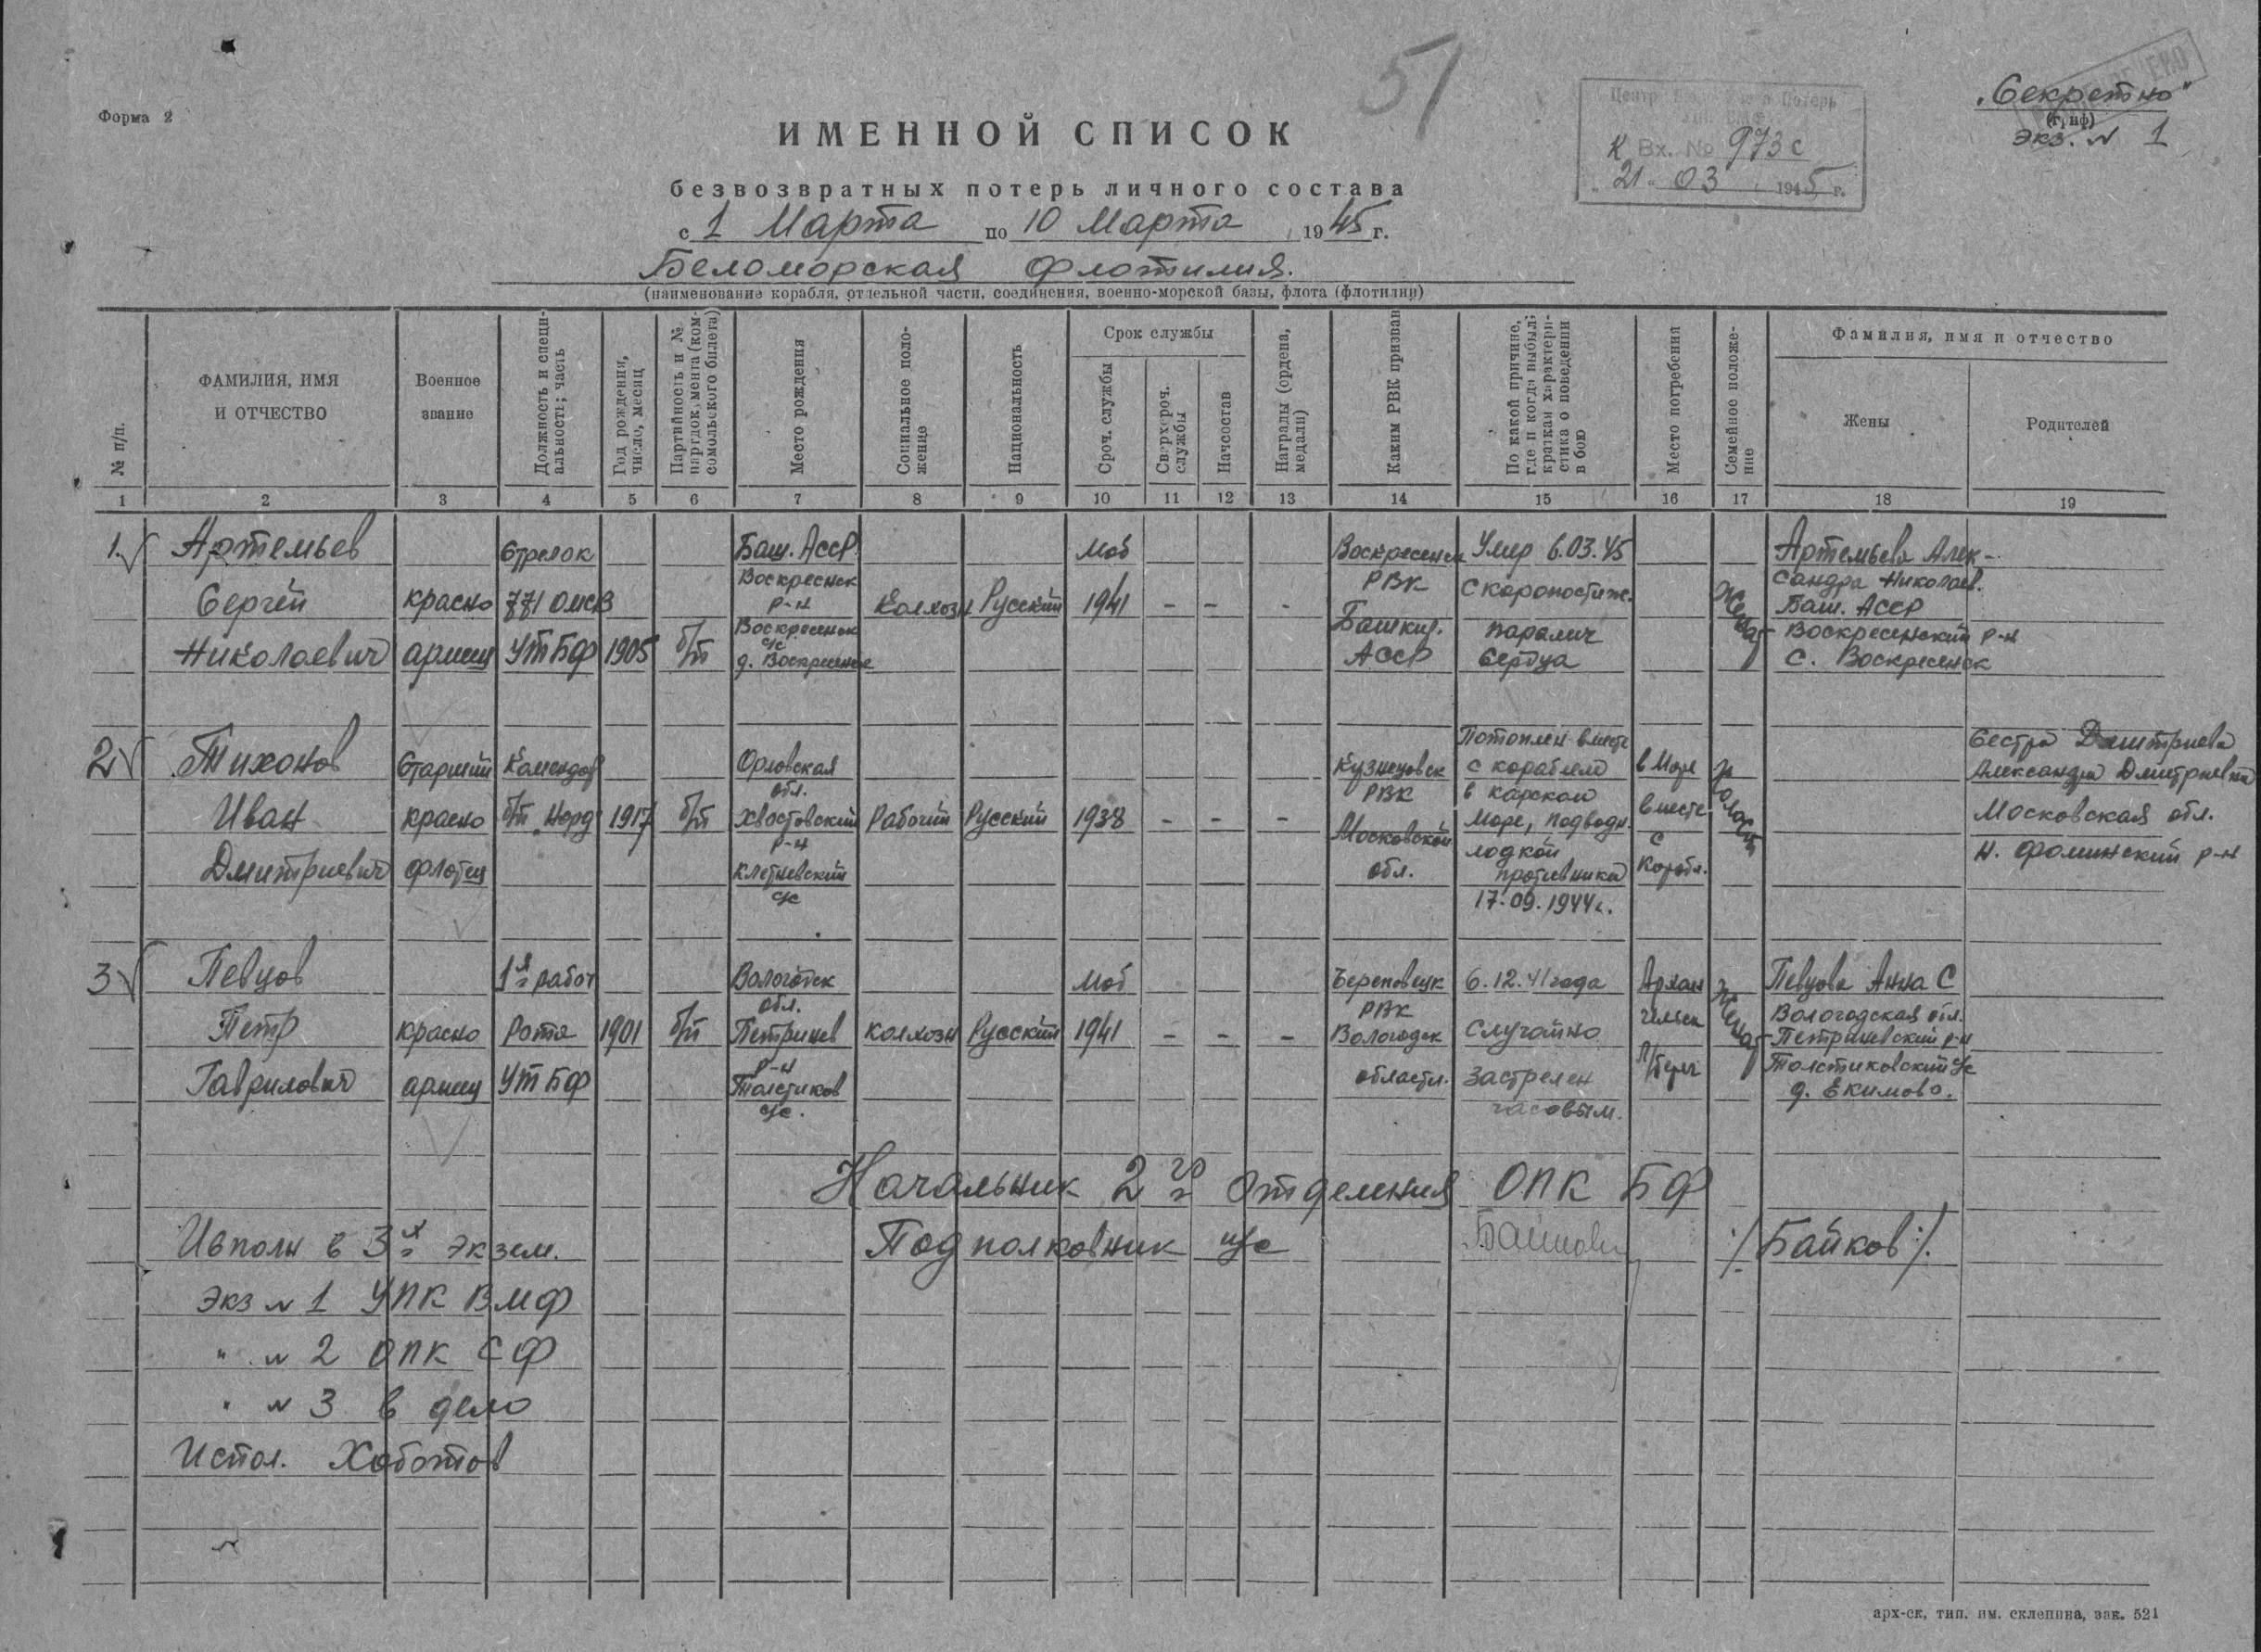 51
Форма 2
„Секретно"
(гриф)
экз. № 1
Центр Потерь
К Вх. № 973с
„21" 03 1945 г.
ИМЕННОЙ СПИСОК
безвозвратных потерь личного состава
с 1 Марта по 10 Марта 1945 г.
Беломорская Флотилия.
(наименование корабля, отдельной части, соединения, военно-морской базы, флота (флотилии)
№ п/п.
ФАМИЛИЯ, ИМЯ И ОТЧЕСТВО
Военное звание
Должность и специальность; часть
Год рождения, число, месяц
Партийность и № партдокумента (комсомольского билета)
Место рождения
Социальное положение
Национальность
Срок службы
Сроч. службы
Сверхсроч. службы
Начсостав
Награды (ордена, медали)
Каким РВК призван
По какой причине, где и когда выбыл; краткая характеристика о поведении в бою
Место погребения
Семейное положение
Фамилия, имя и отчество
Жены
Родителей
1 2 3 4 5 6 7 8 9 10 11 12 13 14 15 16 17 18 19
1. Артемьев Стрелок Баш. АССР. Моб Воскресенск Умер 6.03.45 Артемьева Алек-
Воскресенск РВК Скоропостиж. сандра Николаев.
Сергей красно 771 ОМСВ р-н Колхозн Русский 1941 – – – Женат Баш. АССР
Воскресенск Башкир. паралич Воскресенский р-н
Николаевич армец УТБФ 1905 б/п с/с д. Воскресенск АССР Сердца с. Воскресенск
2 Тихонов Старший Комендор Орловская Кузнецовск Потоплен вместе в Море Сестра Дмитриева
обл. РВК с кораблем Александра Дмитриевна
Иван красно б/т „Норд" 1917 б/п Хвостовский Рабочий Русский 1938 – – – в карском вместе Холост Московская обл.
р-н Московской Море, подводн. с Н. Фоминский р-н
Дмитриевич флотец Клетневский обл. лодкой Корабл.
с/с противника
17.09.1944г.
3 Певцов 1я работ Вологодск Моб Череповецк 6.12.41 года Архан Певцова Анна С
обл. РВК гельск Вологодская обл.
Петр красно Рота 1901 б/п Петринев колхозн Русский 1941 – – – Вологодск Случайно Женат Петриневский р-н
р-н Толстиковский с/с
Гаврилович армец УТБФ Толстиков области. застрелен д. Екимово.
с/с. часовым.
Начальник 2го отделения ОПК БФ
Подполковник и/с /Байков/.
Исполн в 3х экзем.
Экз № 1 УПК ВМФ
" № 2 ОПК СФ
" № 3 в дело
Испол. Хоботов
арх-ск, тип. им. склепина, зак. 521